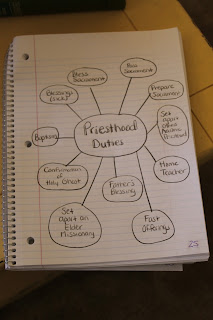 Bless
Sacrament
Pass
Sacrament
Prepare
Sacrament
Blessing
Sick
Priesthood
Duties
Set
apart
Aaronic
Priesthood
Baptism
Home
Teacher
Confirmation
of
Holy Ghost
Father's
Blessing
Set
Apart an
Elder
Missionary
Fast
Offerings
25